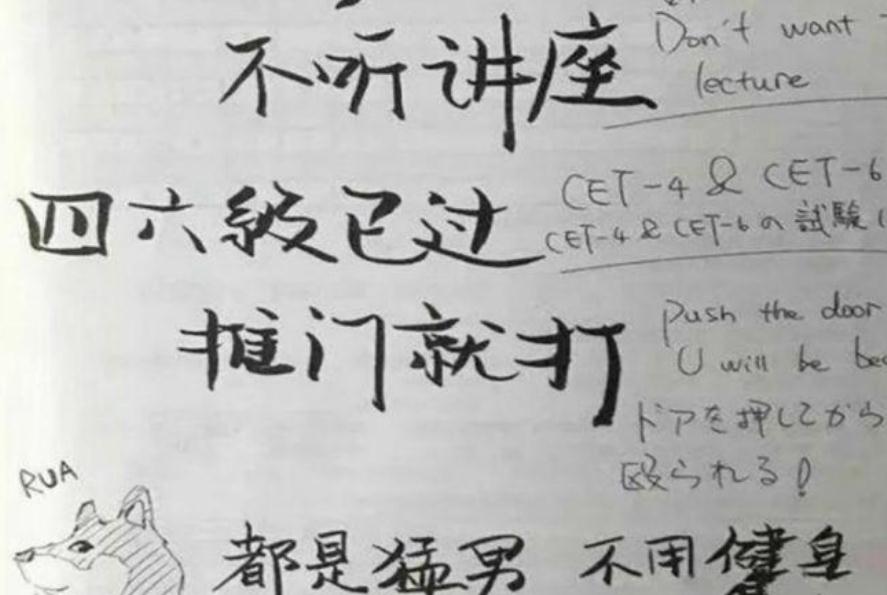 不听讲座
Don't want
lecture
四六级已过
CET-4 & CET-6
CET-4 & CET-6 の 試験
推门就打
push the door
U will be
ドアを押してから
殴られる!
RUA
都是猛男 不用健身